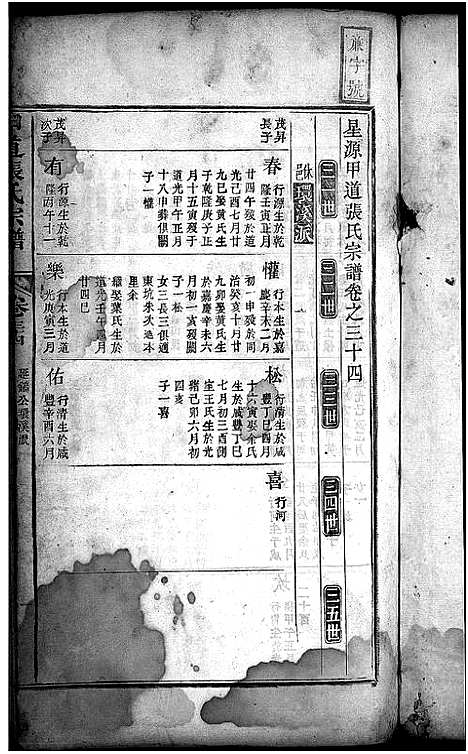 兼字號
星源甲道張氏宗譜卷之三十四
三一世
三二世
三三世
三四世
三五世
環溪派
茂昇
長子
春
行源生於乾
隆壬寅正月
廿四午歿於道
光己酉七月廿
九巳娶黃氏生
子乾隆庚子正
月十五寅歿于
道光甲午正月
十八申葬俱闕
子一權
權
行本生於嘉
慶辛未二月
初一申歿於同
治癸亥十月廿
九卯娶黃氏生
於嘉慶辛未六
月初一亥歿闕
子一松
女三長三俱適
東坑朱次適本
里余
繼娶葉氏生於
道光壬午
廿四巳
松
行清生於咸
豐丁巳四月
十六寅娶余氏
生於咸豐丁巳
七月初三酉側
室王氏生於光
緒己卯六月初
四亥
子一喜
喜
行河
茂昇
次子
有
行源生於乾
隆丙午十一
樂
行本生於道
光庚寅三月
佑
行清生於咸
豐辛酉六月
甲道張氏宗譜
卷三十四